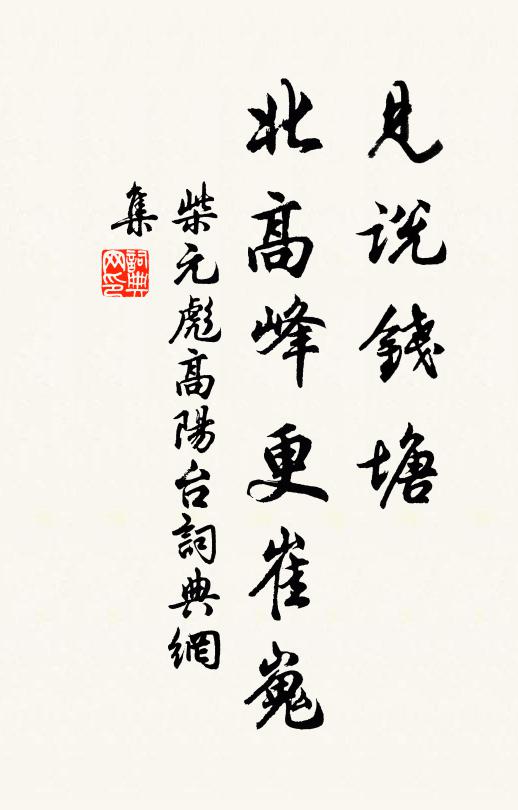 見説錢塘
北高峰更崔嵬
柴元彪高陽台詞典網
集
詞典
网印